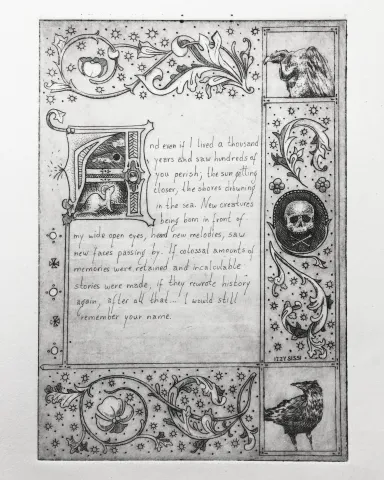 And even if I lived a thousand
years and saw hundreds of
you perish, the sun getting
closer, the shores drowning
in the sea. New creatures
being born in front of
my wide open eyes, heard new melodies, saw
new faces passing by. If colossal amounts of
memories were retained and incalculable
stories were made, if they rewrote history
again, after all that... I would still
remember your name.
IZZY SISSI